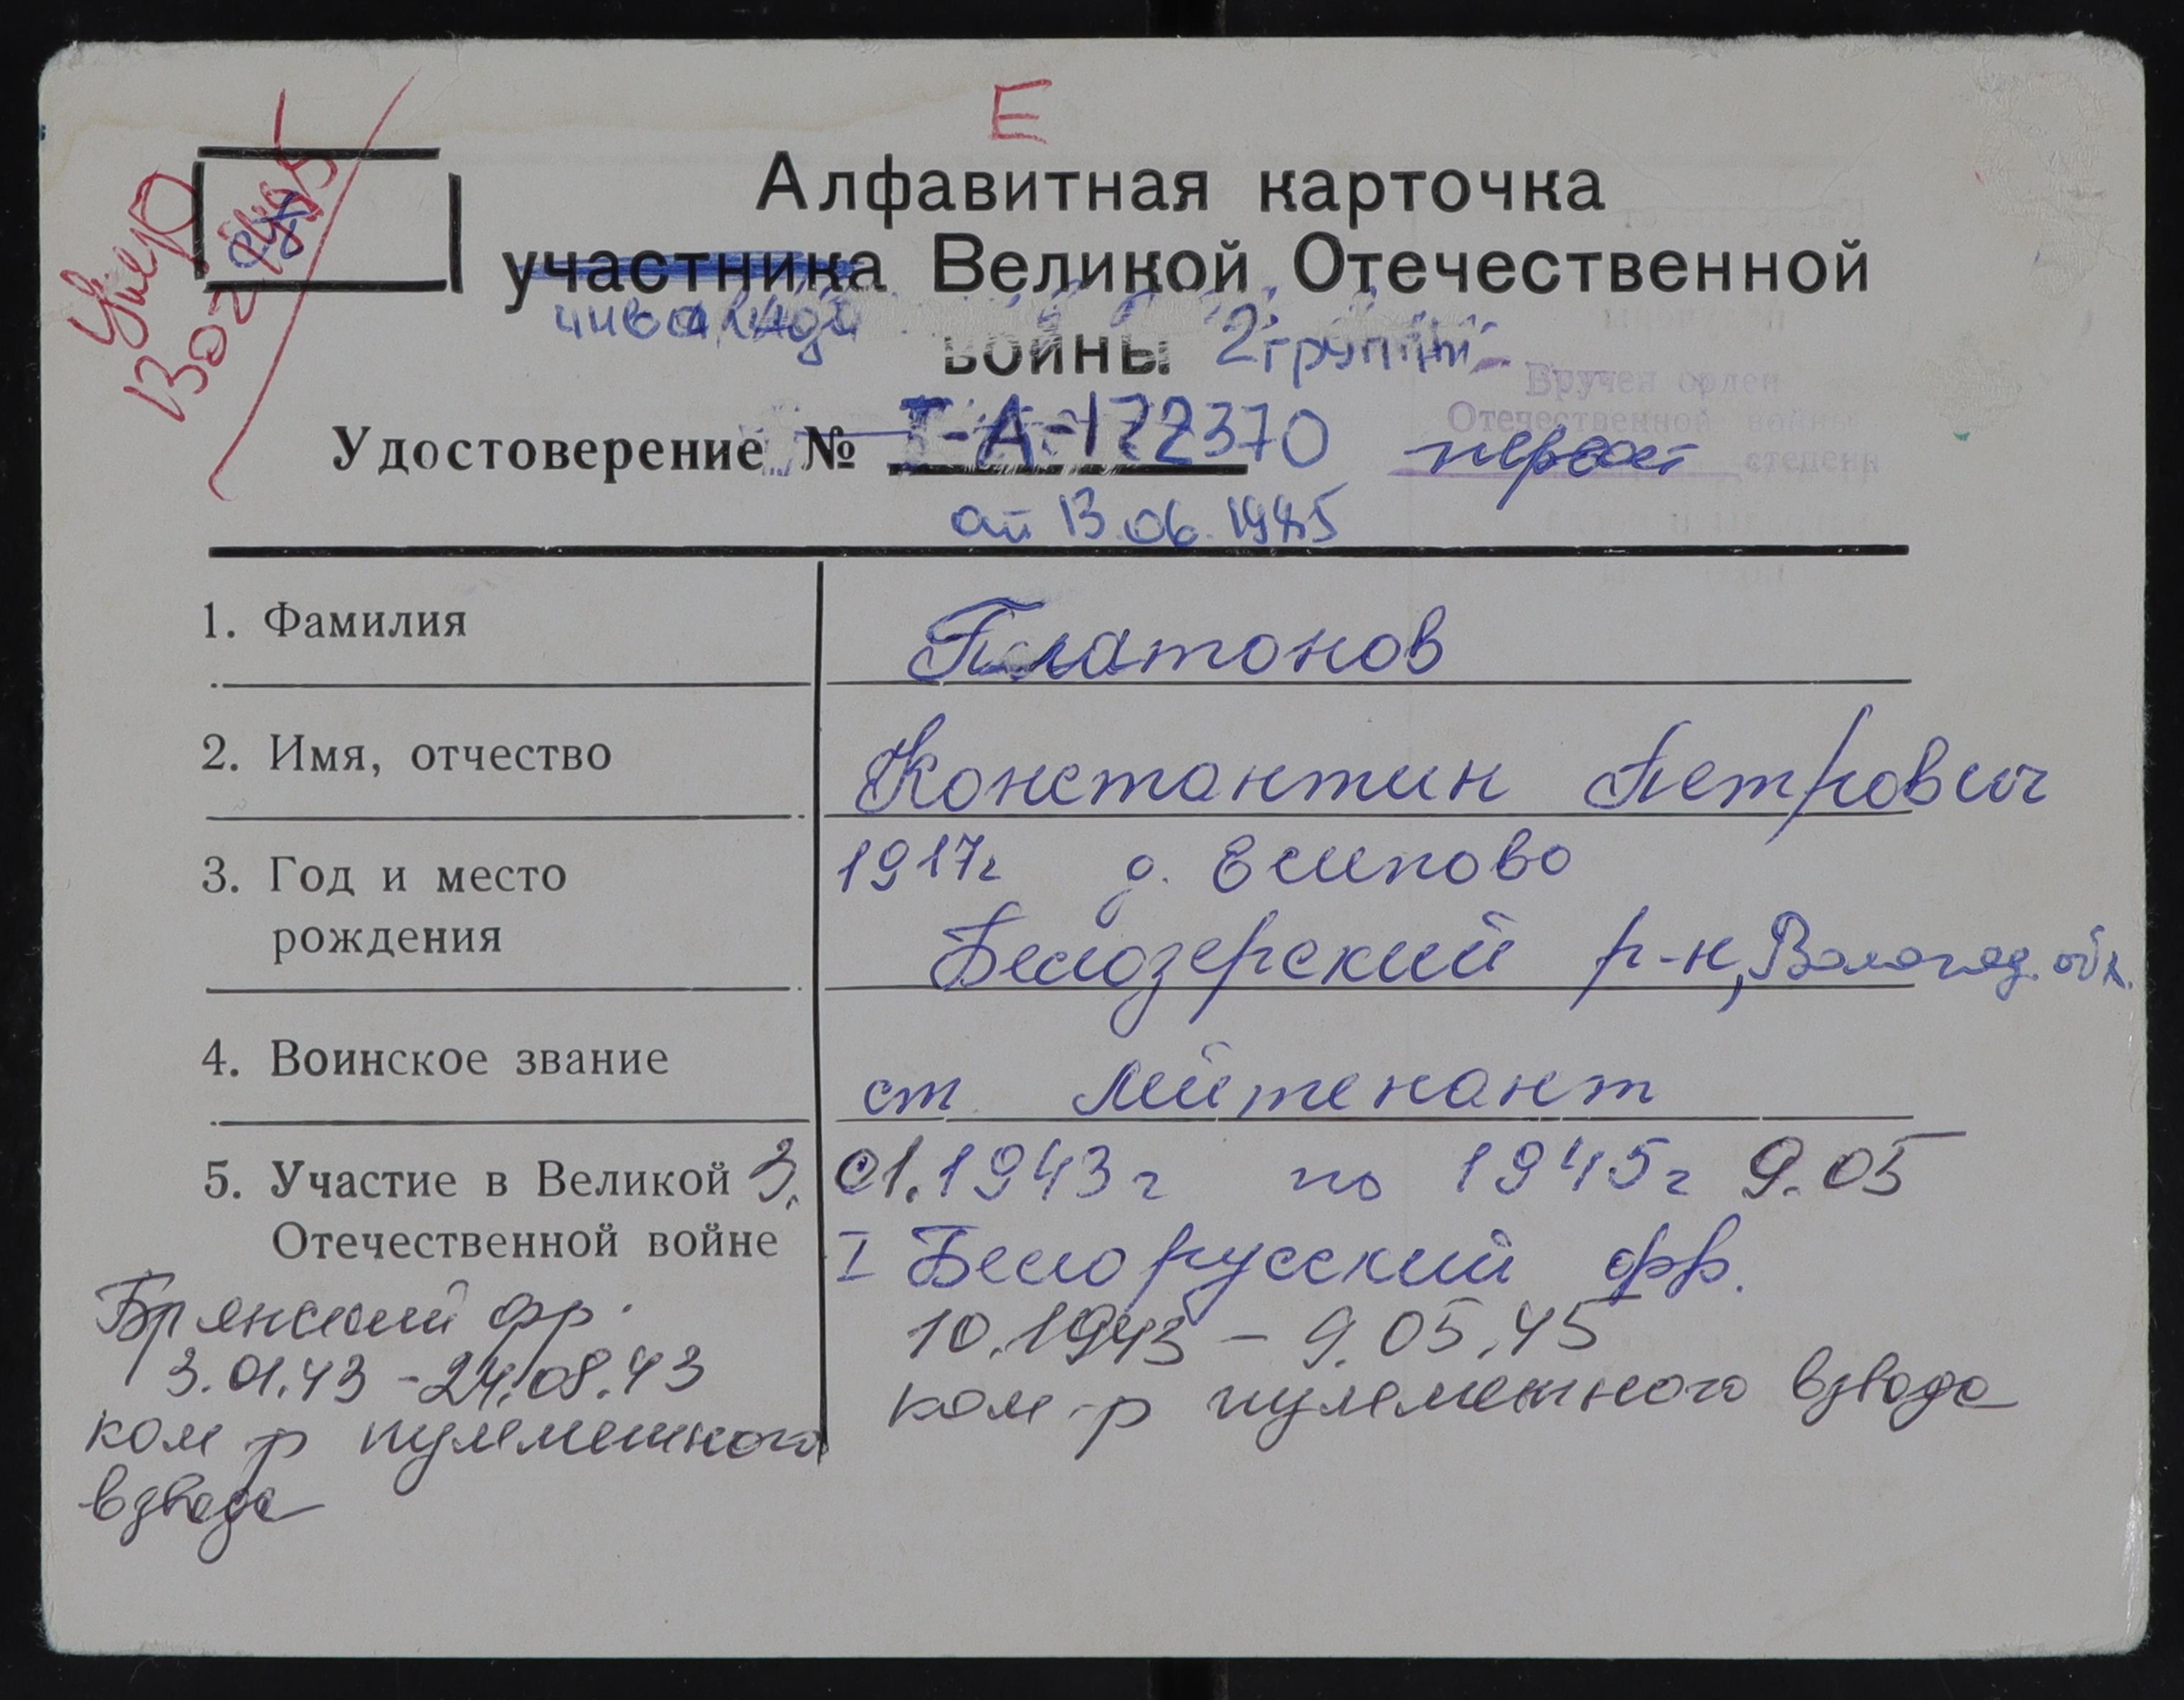 Е
Умер
Алфавитная карточка
участника Великой Отечественной
инвалида
войны 2 группы
Вручен орден
Отечественной войны
первой степени
Удостоверение № I-А-172370
от 13.06.1985
1. Фамилия Платонов
2. Имя, отчество Константин Петрович
3. Год и место рождения 1917г д. Есипово
Белозерский р-н, Вологод. обл.
4. Воинское звание ст лейтенант
5. Участие в Великой Отечественной войне 3.01.1943г по 1945г 9.05
I Белорусский фр.
10.1943 - 9.05.45
ком-р пулеметного взвода
Брянский фр.
3.01.43 - 24.08.43
ком-р пулеметного
взвода